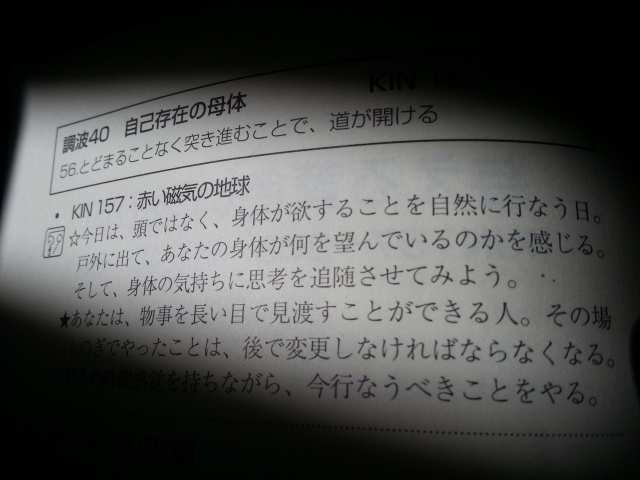 KIN 1
調波40 自己存在の母体
56.とどまることなく突き進むことで、道が開ける
• KIN 157：赤い磁気の地球
☆今日は、頭ではなく、身体が欲することを自然に行なう日。
戸外に出て、あなたの身体が何を望んでいるのかを感じる。
そして、身体の気持ちに思考を追随させてみよう。
★あなたは、物事を長い目で見渡すことができる人。その場
しのぎでやったことは、後で変更しなければならなくなる。
悠久の時間感覚を持ちながら、今行なうべきことをやる。